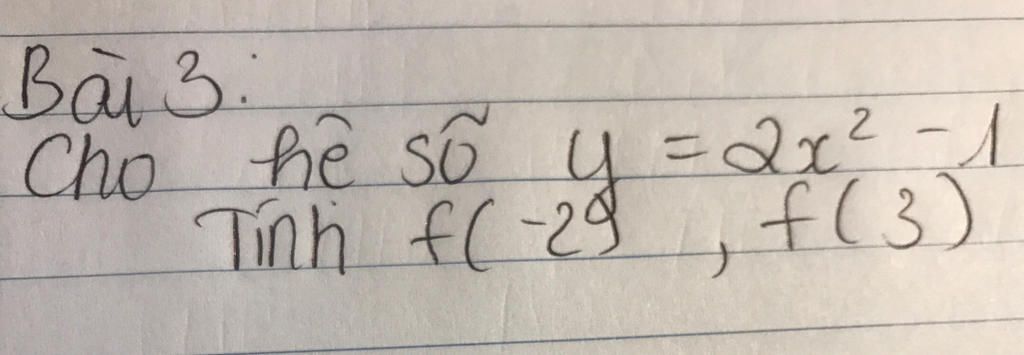 Bài 3:
Cho hề số y = 2x² - 1
Tính f(-2) , f(3)